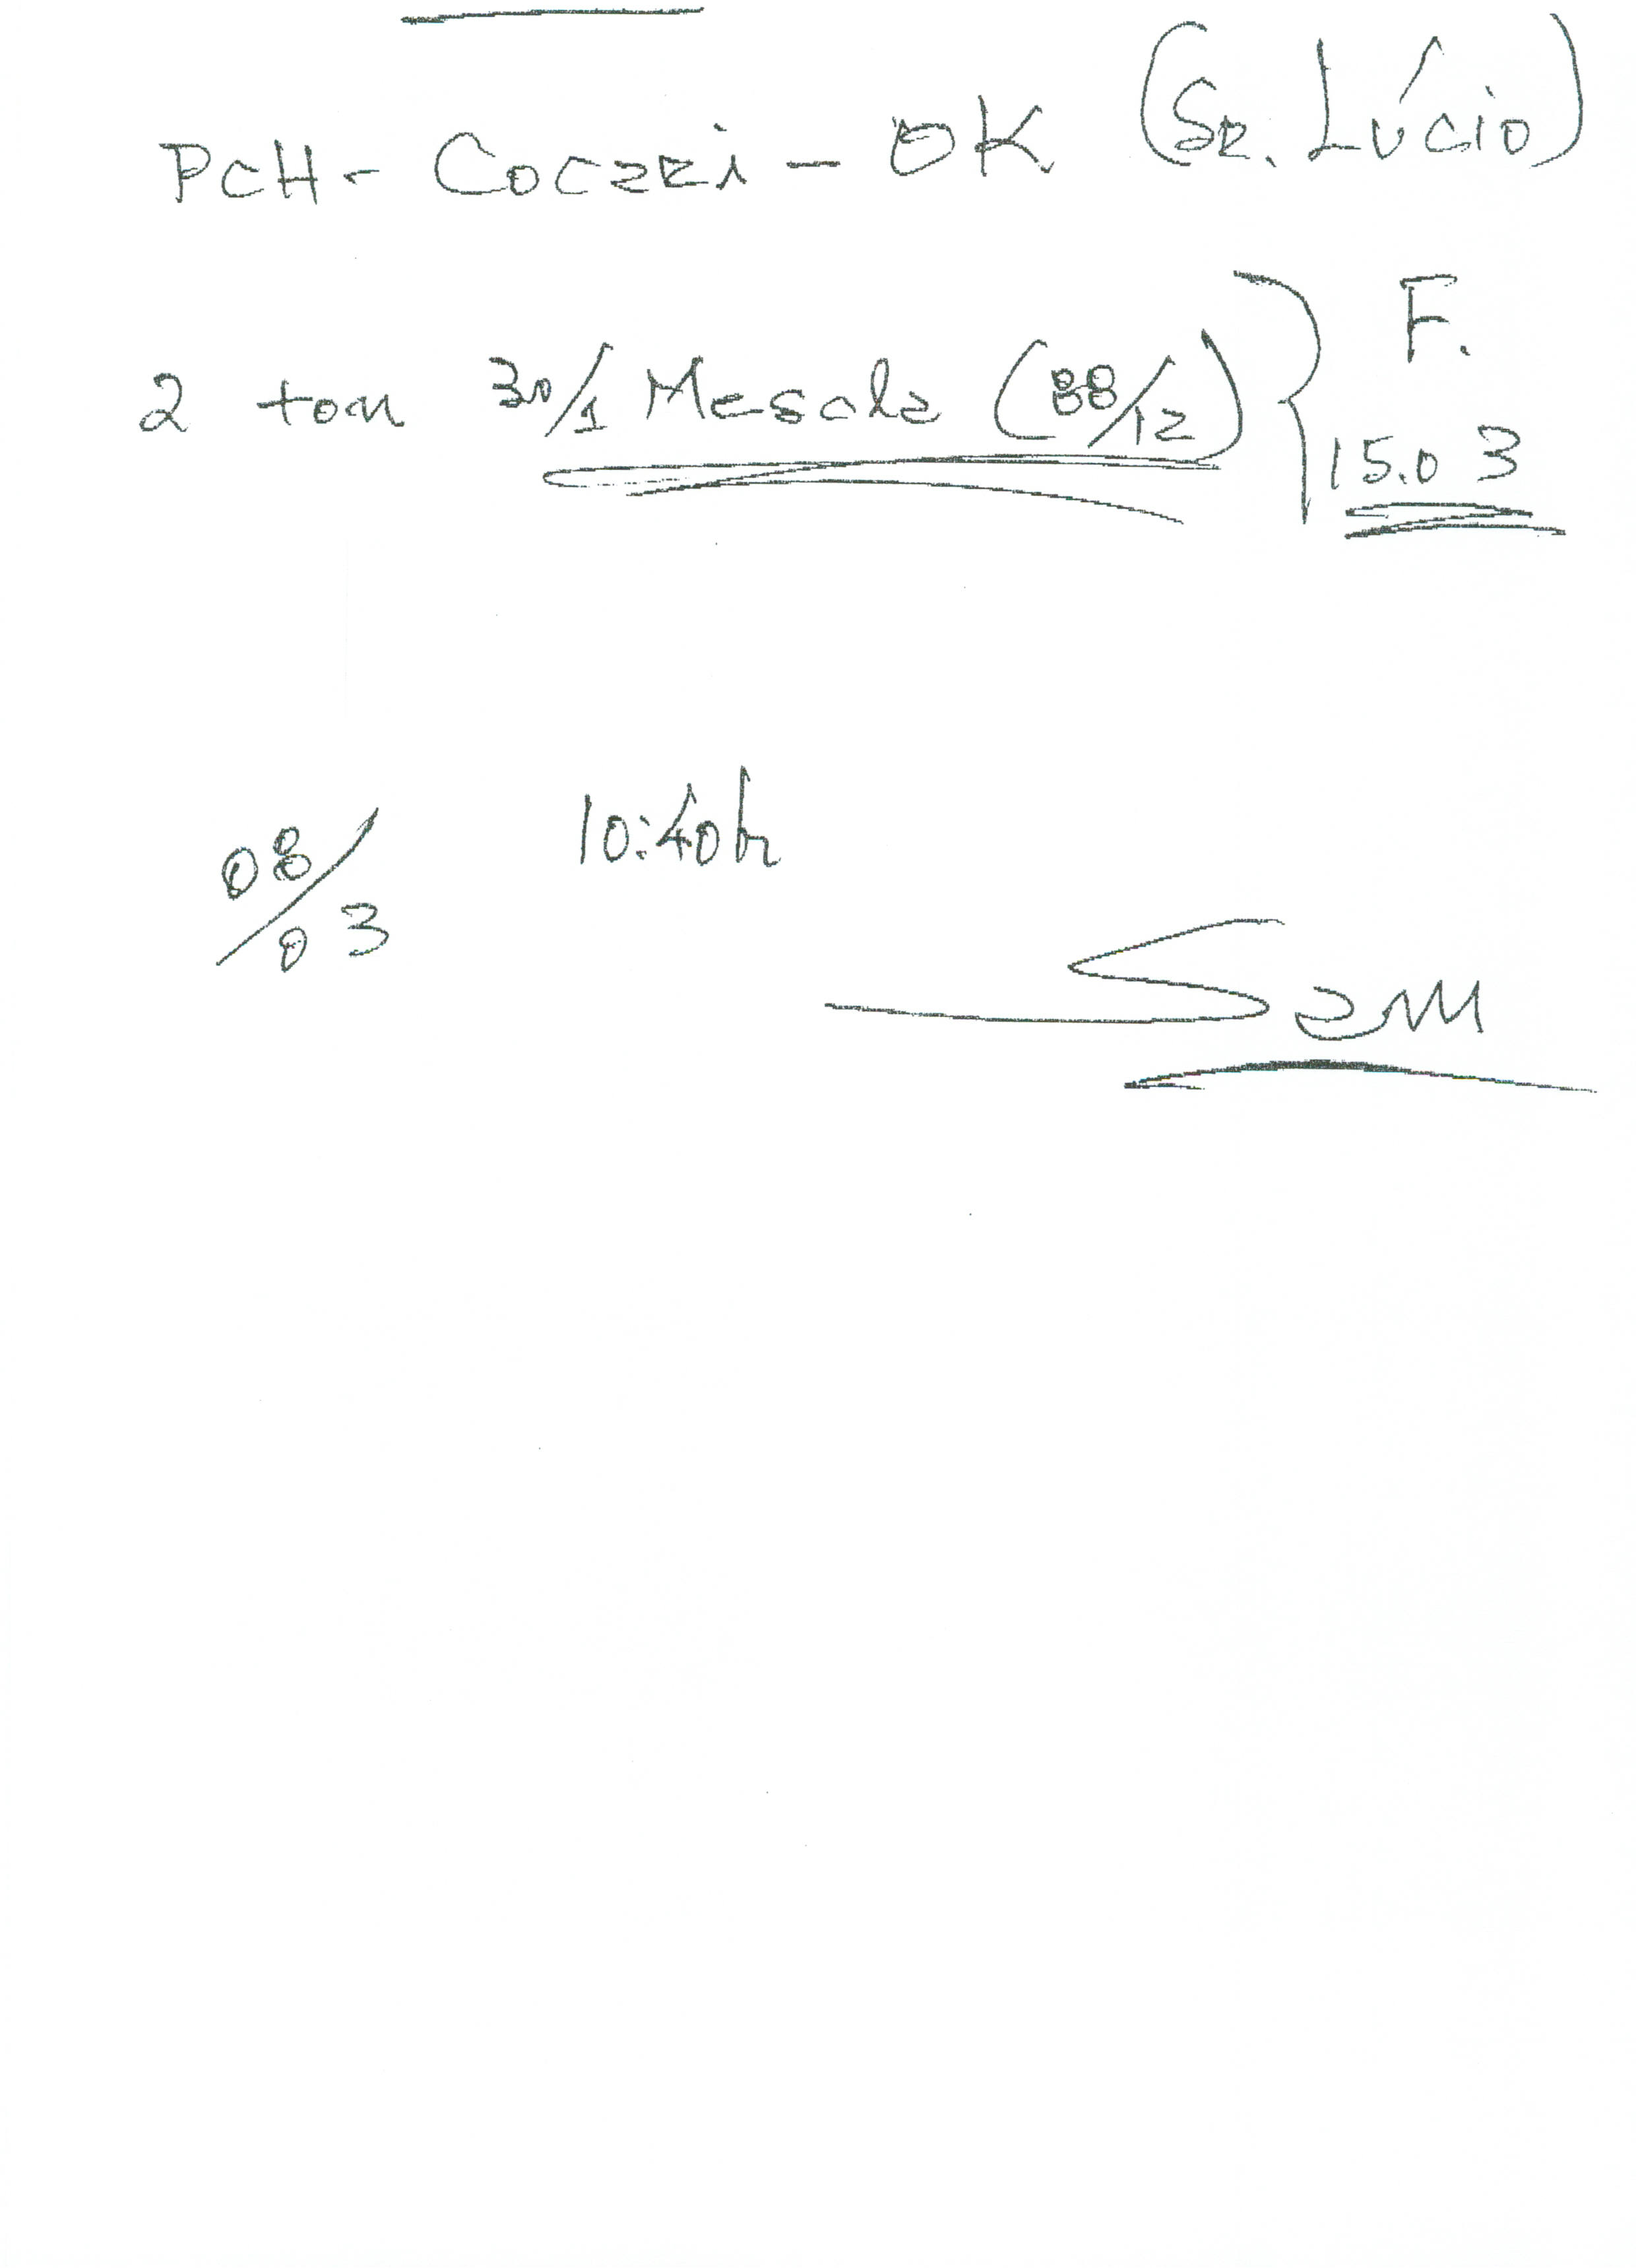 PCH - Cocari - OK (Sr. Lúcio)
2 ton 30/1 Mescla (88/12) } F.
15.03
08/03 10:40h
Sam